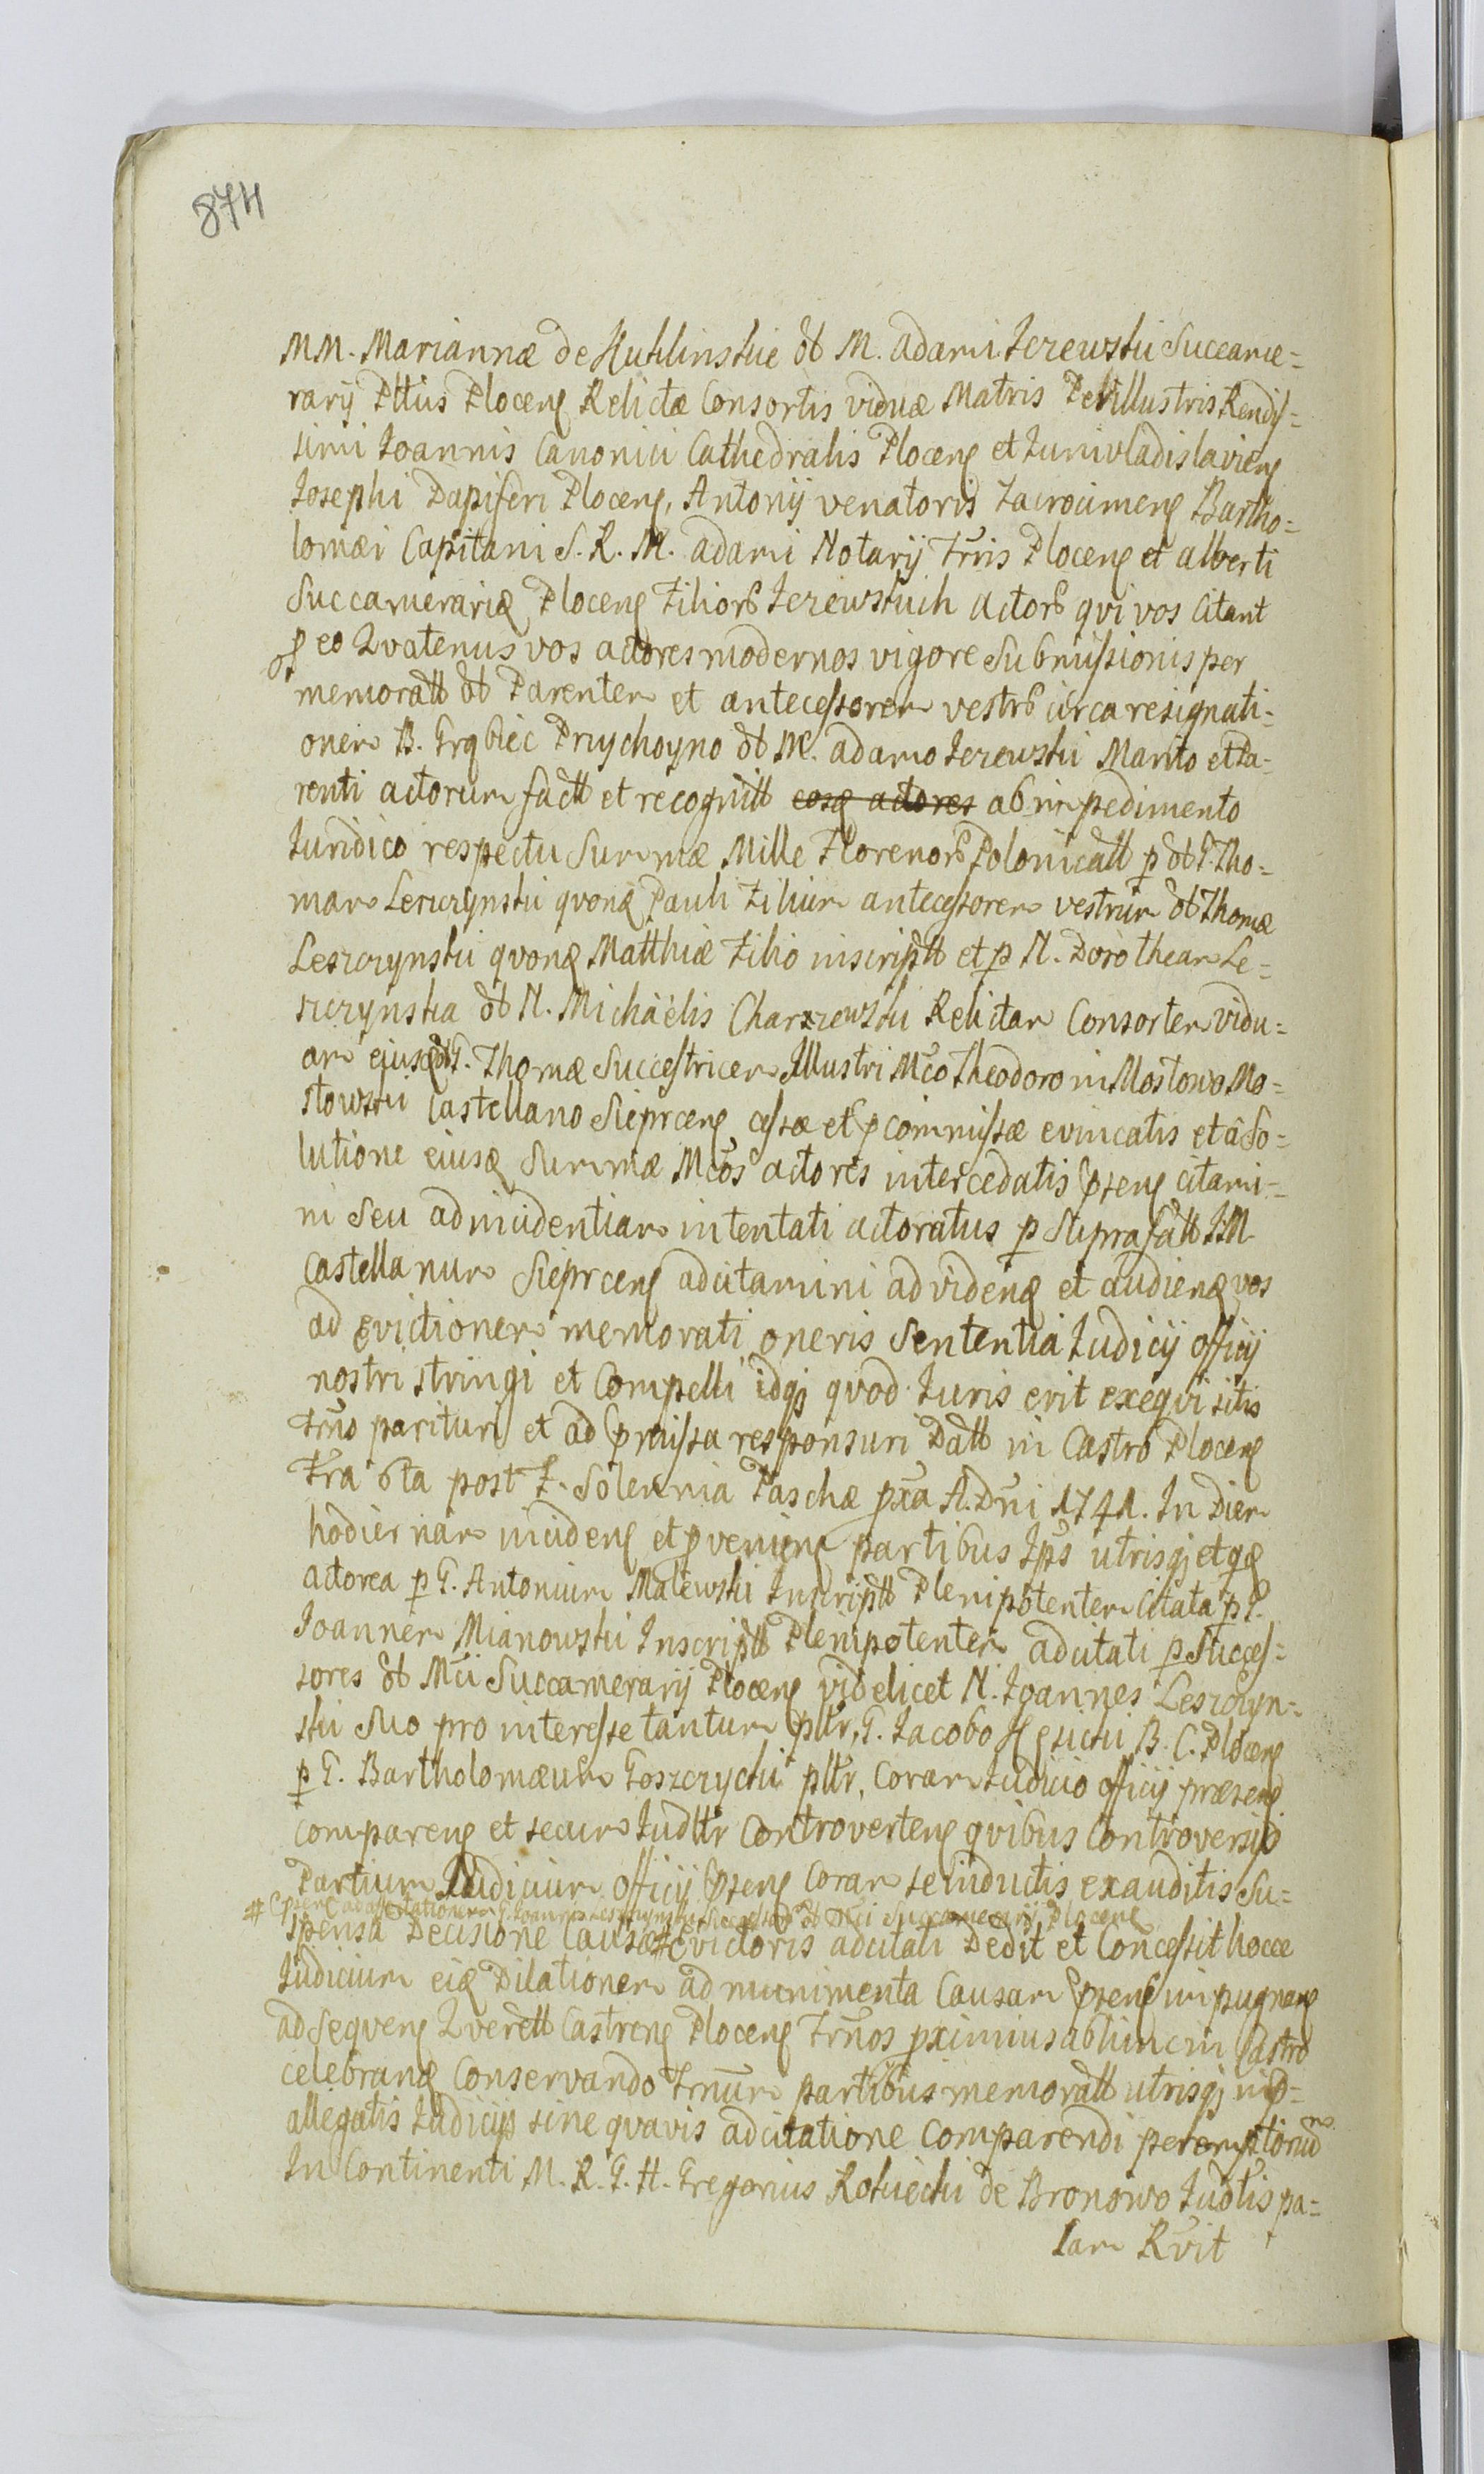 874
MM. Mariannæ de Kuklinskie ol M. Adami Jezewski Succame=
rarij Pltus Plocen Relictæ Consortis viduæ Matris Perillustris Rendis=
simi Joannis Canonici Cathedralis Plocen et Junivladislavien
Josephi Dapiferi Plocen, Antonij venatoris Zacrocimen Bartho=
lomæi Capitani S. R. M. Adami Notarij Trris Plocen et Alberti
Succamerarid Plocen Filior Jezewskich Actor qvi vos Citant
p eo Qvatenus vos actores modernos vigore Submissionis per
memoratt ol Parentem et antecessorem vestr circa resignati=
onem B. Grąbiec Przychoyno ol M. Adamo Jezewski Marito et Pa=
renti actorum factt et recognitt eosq actores ab impedimento
Juridico respectu Summæ Mille Florenor Polonicatt p ol G. Tho=
mam Leszczynski qvond Pauli Filium antecessorem vestrum ol Thomæ
Leszczynski qvond Matthiæ Filio inscriptt et p N. Dorotheam Le=
szczynska ol N. Michaelis Charzewski Relictam Consortem vidu=
am ejusd ol G. Thomæ Successtricem Illustri Mco Theodoro in Mostowo Mo=
stowski Castellano Sieprcen cessæ et pcommissæ evincatis et â So=
lutione eiusd Summæ Mcos actores intercedatis psens citami=
ni Seu ad incidentiam intentati actoratus p Suprafatt I. M.
Castellanum Sieprcen adcitamini ad vidend et audiend vos
ad evictionem memorati oneris Sententia Judicij officij
nostri stringi et Compelli idq qvod Juris erit exeqvi sitis
Trno parituri et ad pmissa responsuri Datt in Castro Plocen
Fra 6ta post F. Solennia Paschæ pxa A. Dni 1741. In Diem
hodiernam inciden et pvenien partibus Ips utrisq et qd
actorea p G. Antonium Malewski Inscriptt Plenipotentem Citata p G.
Joannem Mianowski Inscriptt Plenipotentem adcitati p Succes=
sores ol Mci Succamerarij Plocen videlicet N. Joannes Leszczyn=
ski Suo pro interesse tantum pltr, G. Jacobo B. C. Plocen
p G. Bartholomæum Goszczycki pltr, Coram Judicio officij præsen
comparen et secum Judltr Controverten qvibus Controversijs
Partium Judicium officij psens Coram se inductis exauditis Su=
# psen ad Joannis Leszczynski Successor ol Mci Succamerarij Plocen
spensa Decisione Causæ # Evictoris adcitati Dedit et Concessit hocce
Judicium eid Dilationem ad munimenta Causam psens impugnan
ad Seqven Qverell Castren Plocen Trnos pximius abhinc in Castro
celebrand Conservando Trnum partibus memoratt utrisq in p=
allegatis Judicijs sine qvavis adcitatione Comparendi peremptorium
In Continenti M. R. G. H. Gregorius Rokicki de Bronowo Judlis pa=
lam Rvit